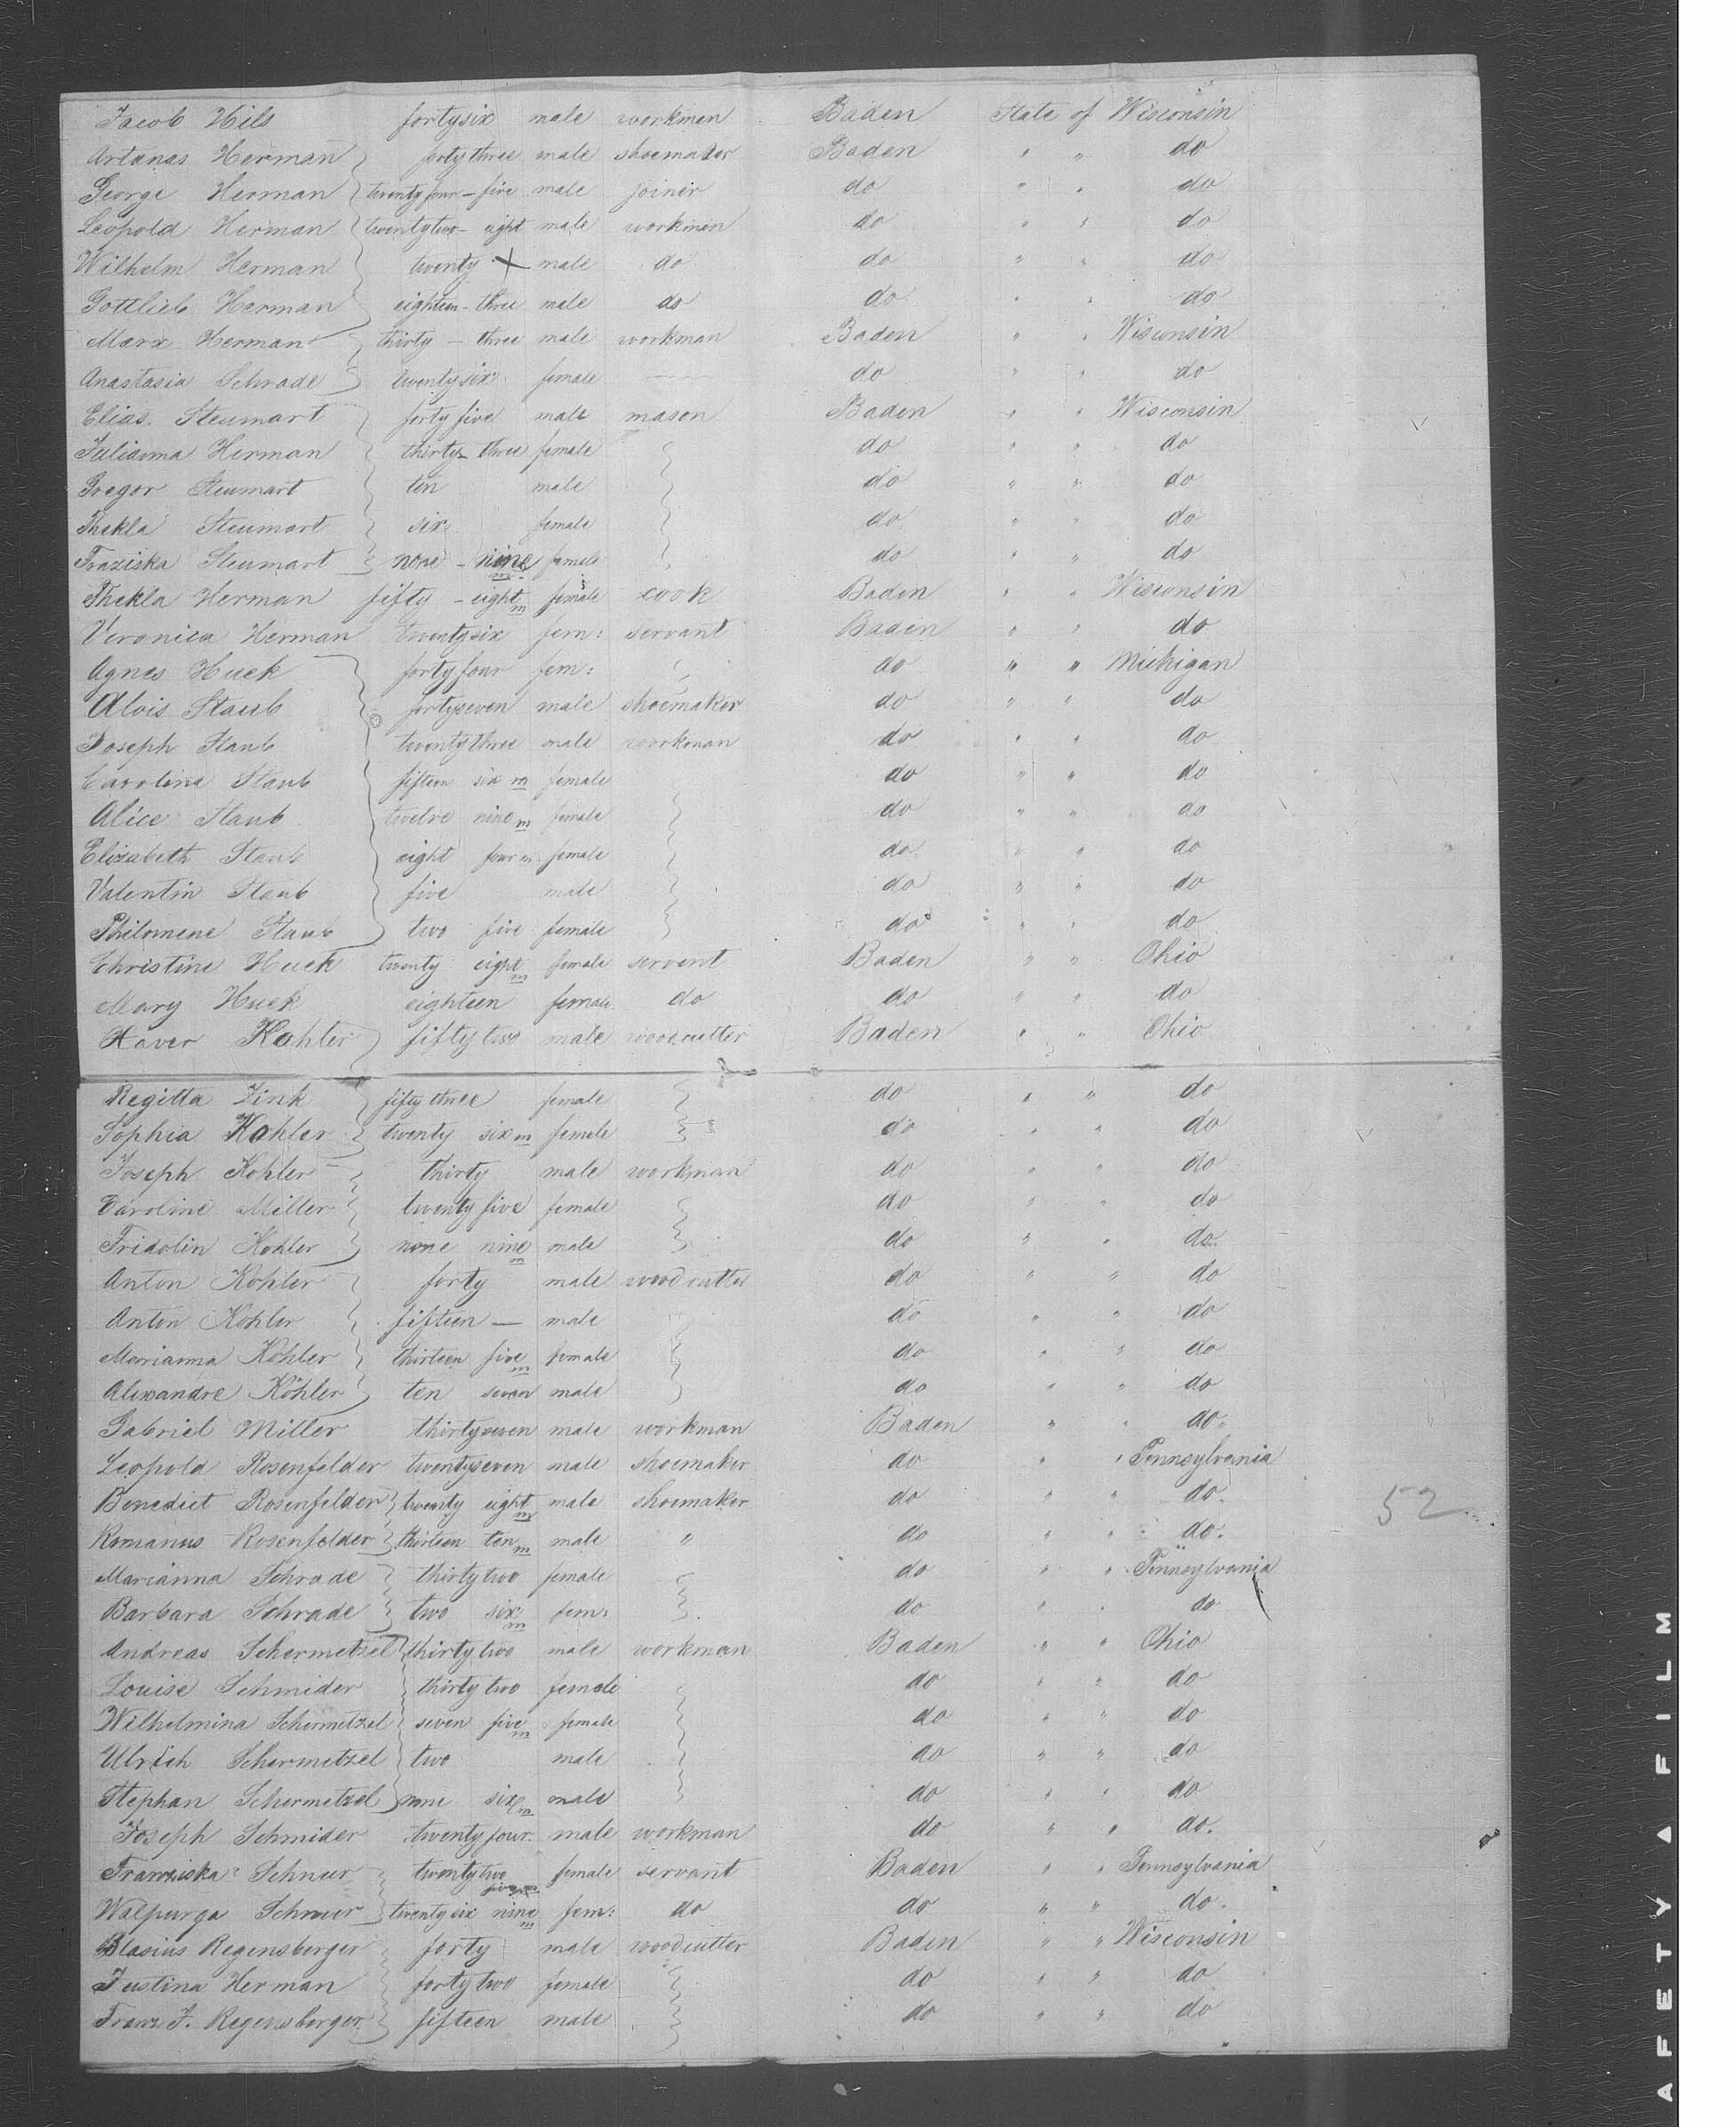 Jacob Hils fortysix male workmen Baden State of Wisconsin
Artanas Herman fortythree male shoemaker Baden " " do
George Herman twenty four - five male joinir do " " do
Leopold Herman twentytwo - eight male workmen do " " do
Wilhelm Herman twenty male do do " " do
Gottlieb Herman eighteen - three male do do " " do
Marx Herman thirty - three male workman Baden " " Wisconsin
Anastasia Schrade twentysix female — do " " do
Elias Steumart forty five male mason Baden " " Wisconsin
Julianna Herman thirty - three female do " " do
Gregor Steumart ten male do " " do
Thekla Steumart six female do " " do
Fraziska Steumart none - nine m female do " " do
Thekla Herman fifty - eight m female cook Baden " " Wisconsin
Veronica Herman twentysix fem: servant Baden " " do
Agnes Huck forty four fem: do " " Michigan
Alois Staub fortyseven male shoemaker do " " do
Joseph Staub twentythree male workman do " " do
Carolina Staub fifteen six m female do " " do
Alice Staub twelve nine m female do " " do
Elizabeth Staub eight four m female do " " do
Valentin Staub five male do " " do
Philomene Staub two five female do " " do
Christine Huck twenty eight m female servent Baden " " Ohio
Mary Huck eighteen female do do " " do
Xaver Kohler fifty two male woodcutter Baden " " Ohio
Regitta Zink fifty three female do " " do
Sophia Kohler twenty six m female do " " do
Joseph Kohler thirty male workman do " " do
Caroline Miller twenty five female do " " do
Fridolin Kohler none nine m male do " " do
Anton Kohler forty male woodcutter do " " do
Anton Kohler fifteen — male do " " do
Marianna Kohler thirteen five m female do " " do
Alexandre Köhler ten seven male do " " do
Gabriel Miller thirtyseven male workman Baden " " do
Leopold Rosenfelder twentyseven male shoemaker do " " Pennsylvania
Benedict Rosenfelder twenty eight m male shoemaker do " " do.
52
Romanus Rosenfelder thirteen ten m male " do " " do.
Marianna Schrade thirty two female do " " Pennsylvania
Barbara Schrade two six m fem: do " " do
Andreas Schermetzel thirty two male workman Baden " " Ohio
Louise Schmider thirty two female do " " do
Wilhelmina Schermetzel seven five m female do " " do
Ulrich Schermetzel two male do " " do
Stephan Schermetzel none six m male do " " do
Joseph Schmider twenty four male workman do " " do.
Franziska Schnur twentytwo five m female servant Baden " " Pennsylvania
Walpurga Schnur twenty six nine m fem: do do " " do.
Blasius Regensberger forty male woodcutter Baden " " Wisconsin
Justina Herman forty two female do " " do
Franz J. Regensberger fifteen male do " " do
AFETY A FILM